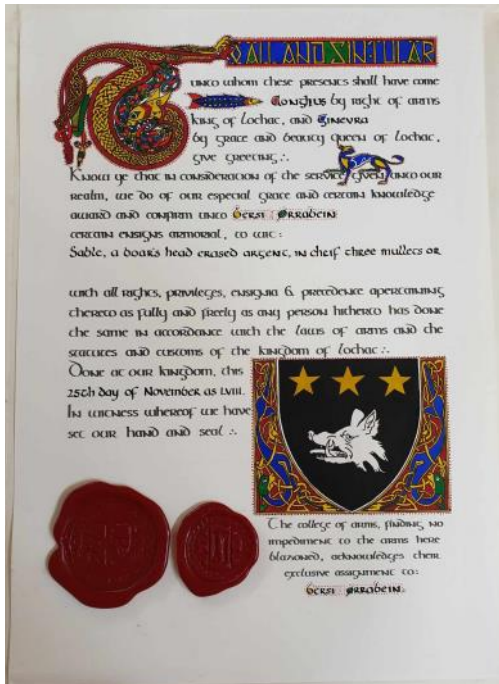 TO ALL AND SINGULAR
unto whom these presents shall have come
Aonghus by right of arms
king of Lochac, and Ginevra
by grace and beauty queen of Lochac,
give greeting ∴
Know ye that in consideration of the service given unto our
realm, we do of our especial grace and certain knowledge
award and confirm unto Bersi Ørrabein
certain ensigns armorial, to wit:
Sable, a boar's head erased argent, in cheif three mullets or
with all rights, privileges, ensignia & precedence apertaining
thereto as fully and freely as any person hitherto has done
the same in accordance with the laws of arms and the
statutes and customs of the kingdom of Lochac ∴
Done at our kingdom, this
25th day of November as LVIII.
In witness whereof we have
set our hand and seal ∴
The college of arms, finding no
impediment to the arms here
blazoned, acknowledges their
exclusive assignment to:
Bersi Ørrabein.